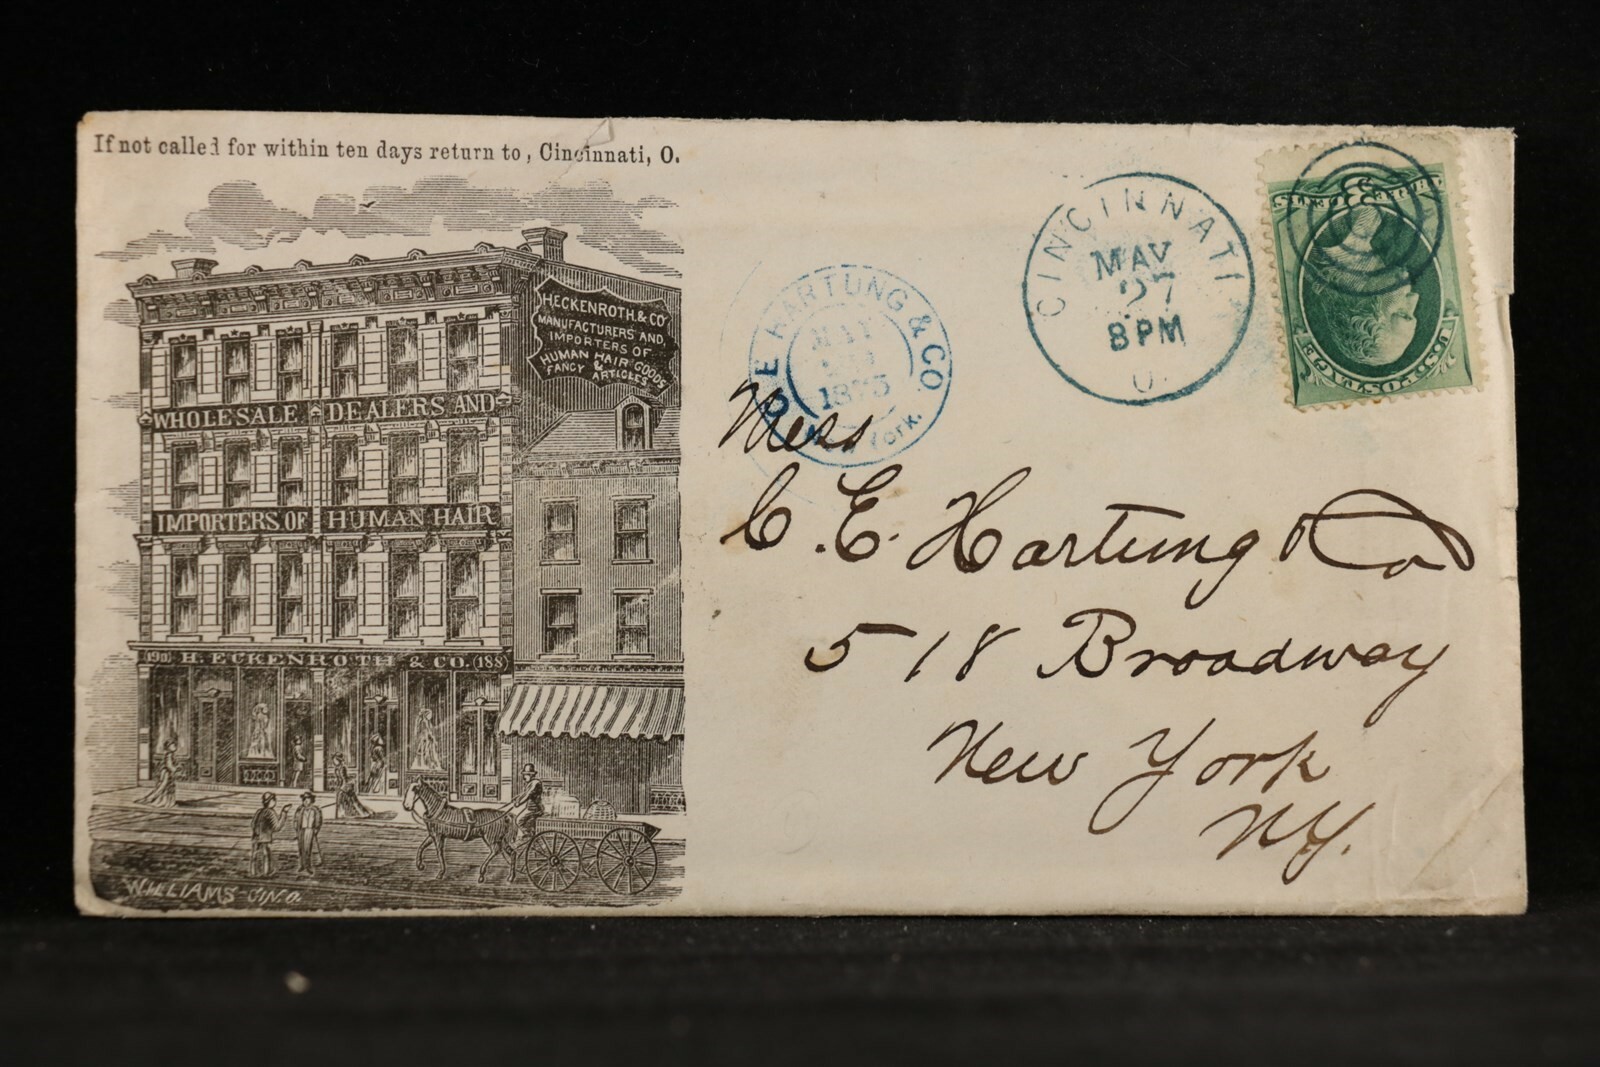 If not called for within ten days return to, Cincinnati, O.
HECKENROTH & CO
MANUFACTURERS AND
IMPORTERS OF
HUMAN HAIR GOODS
&
FANCY ARTICLES
WHOLESALE DEALERS AND
IMPORTERS OF HUMAN HAIR
(190) H. ECKENROTH & CO. (188)
WILLIAMS-CIN.O.
E HARTUNG & CO
MAY
1875
York.
CINCINNATI
MAY
27
8 PM
O.
Mess
C. E. Hartung & Co
518 Broadway
New York
NY.
U.S. POSTAGE